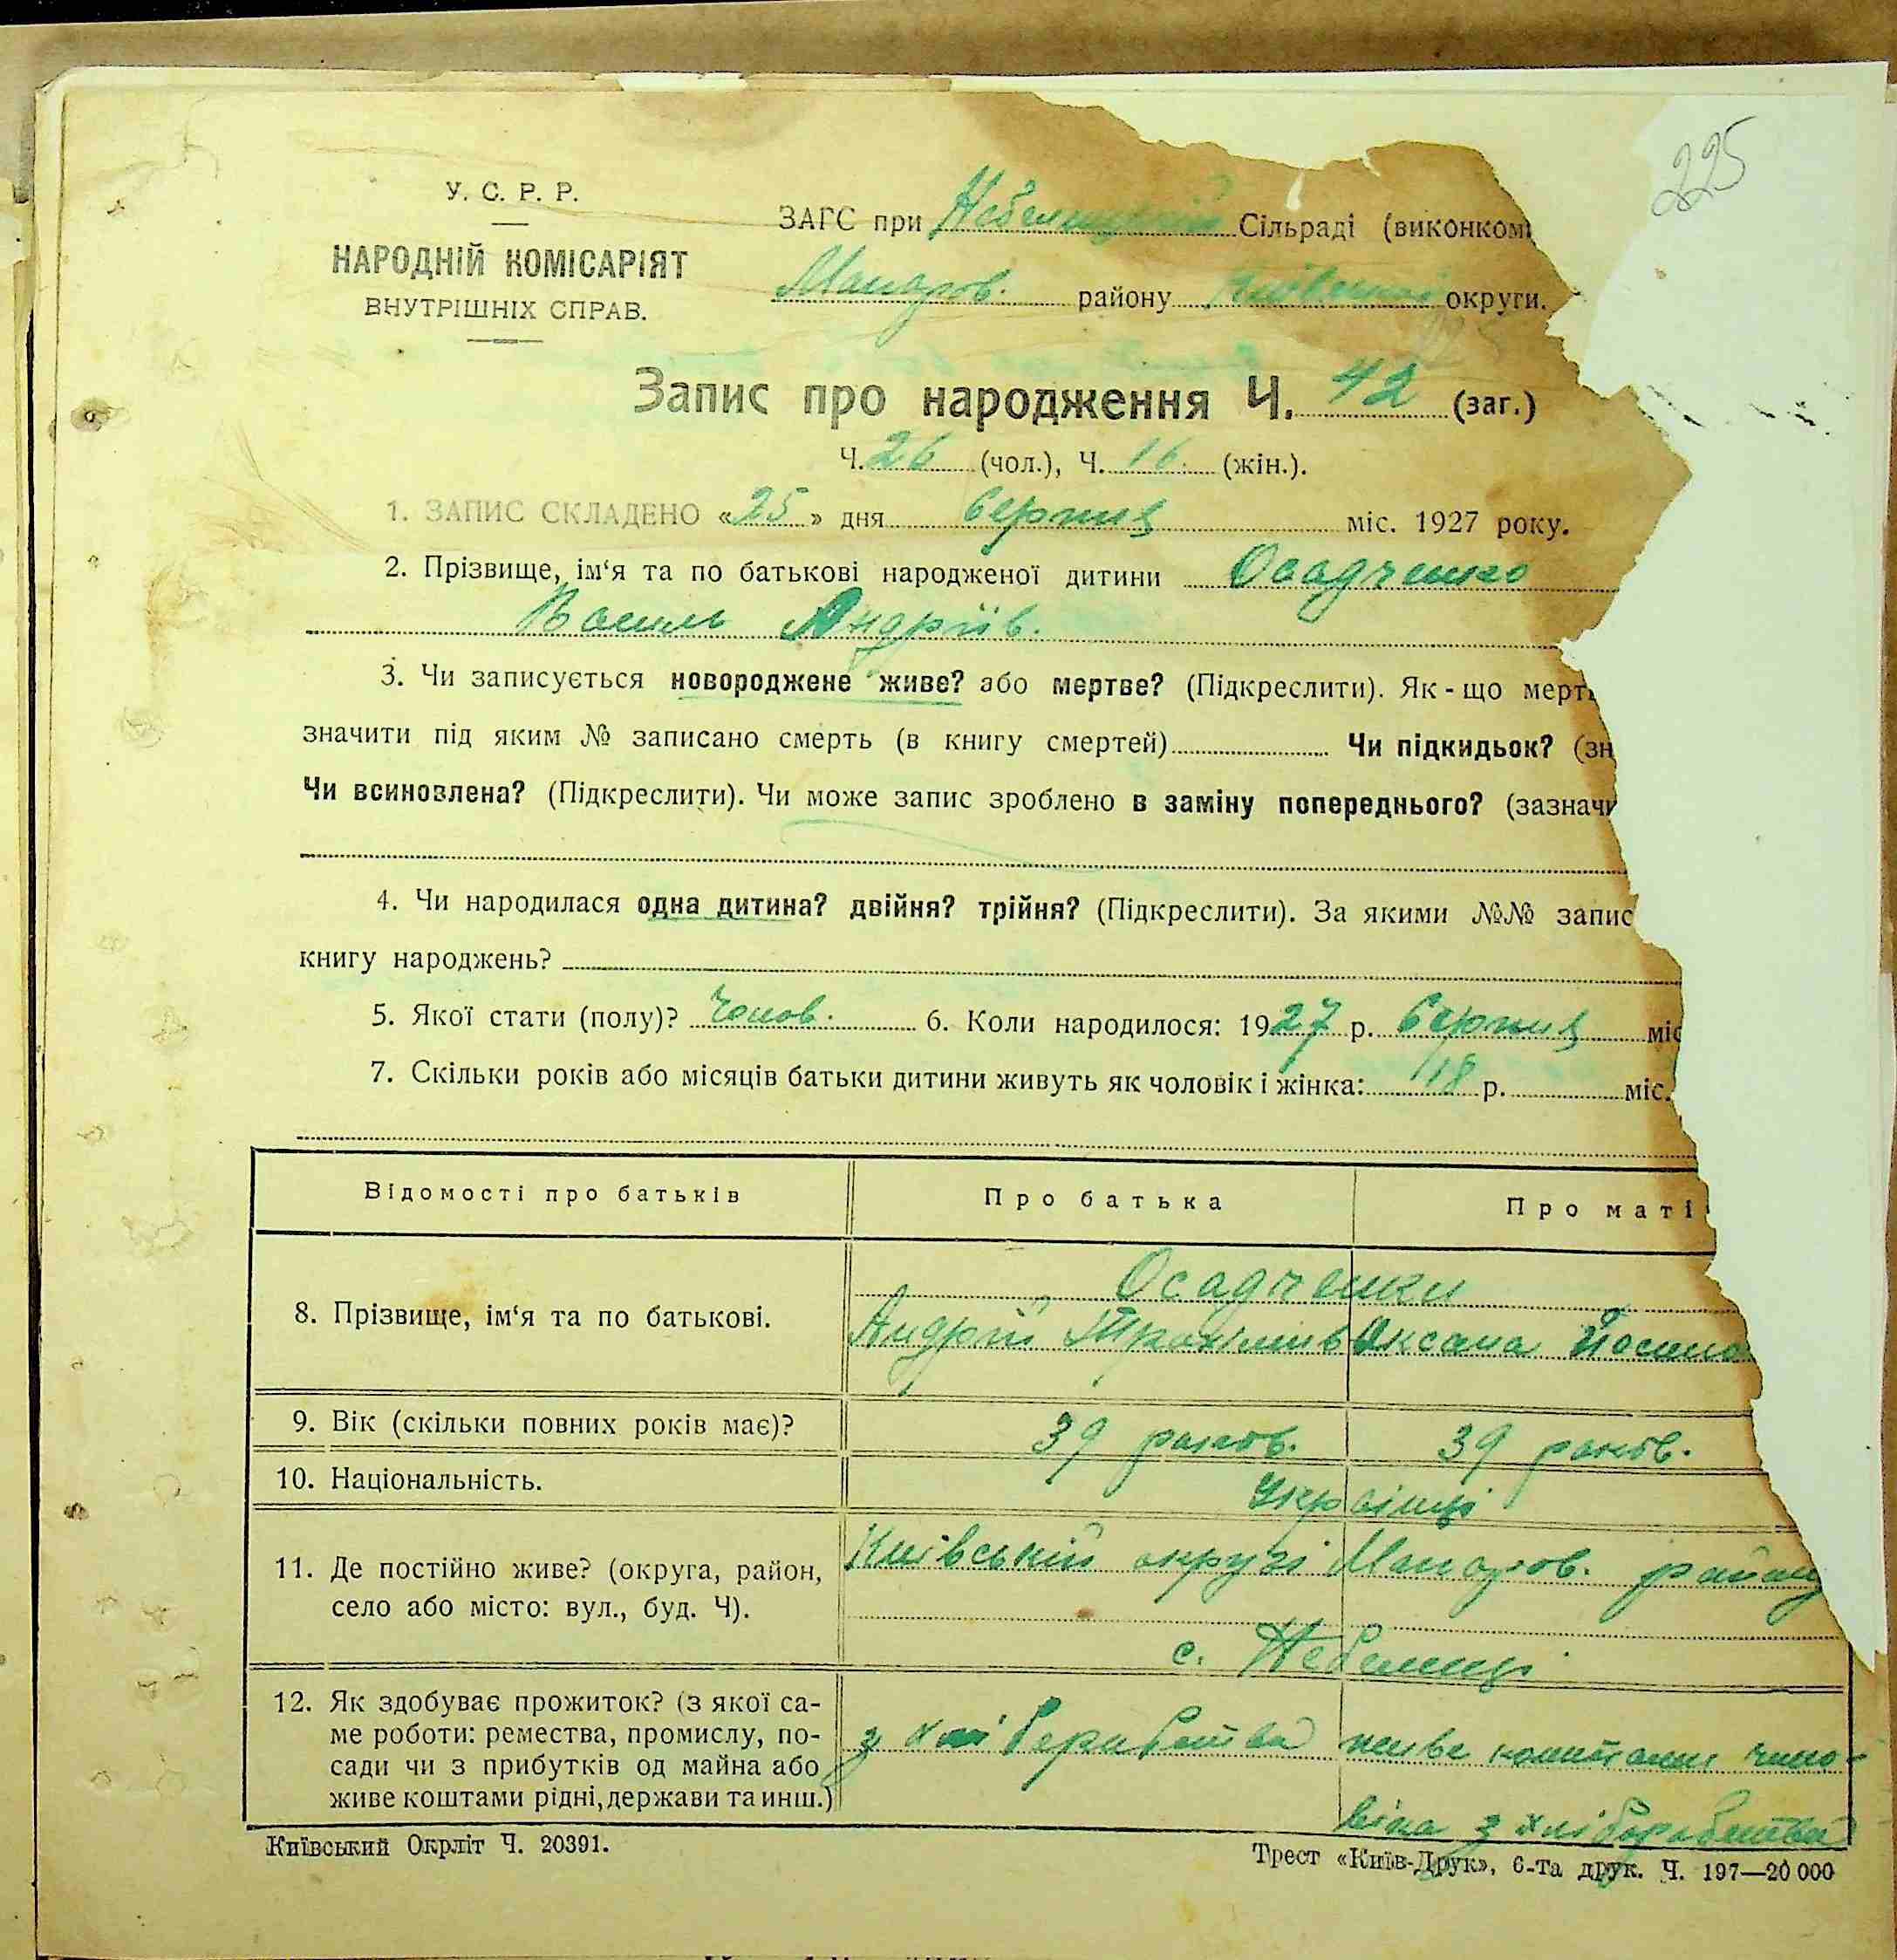 225
У. С. Р. Р.
НАРОДНІЙ КОМІСАРІЯТ
ВНУТРІШНІХ СПРАВ.
ЗАГС при Небелицькій Сільраді (виконком
Макаров. району Київської округи.
Запис про народження Ч. 42 (заг.)
Ч. 26 (чол.), Ч. 16. (жін.).
1. ЗАПИС СКЛАДЕНО «25» дня Серпня міс. 1927 року.
2. Прізвище, ім‘я та по батькові народженої дитини Осадченко
Василь Андріїв.
3. Чи записується новороджене живе? або мертве? (Підкреслити). Як-що мертв
значити під яким № записано смерть (в книгу смертей) Чи підкидьок? (зн
Чи всиновлена? (Підкреслити). Чи може запис зроблено в заміну попереднього? (зазначи
4. Чи народилася одна дитина? двійня? трійня? (Підкреслити). За якими №№ запис
книгу народжень?
5. Якої стати (полу)? Чолов. 6. Коли народилося: 1927 р. Серпня міс
7. Скільки років або місяців батьки дитини живуть як чоловік і жінка: 18 р. міс.
Відомості про батьків Про батька Про маті
8. Прізвище, ім‘я та по батькові.
Осадченки
Андрій Трохимів Оксана Йосипо
9. Вік (скільки повних років має)? 39 років. 39 років.
10. Національність. Українці
11. Де постійно живе? (округа, район,
село або місто: вул., буд. Ч).
Київській окрузі Макаров. району
с. Небелиці
12. Як здобуває прожиток? (з якої са-
ме роботи: ремества, промислу, по-
сади чи з прибутків од майна або
живе коштами рідні, держави та инш.)
з хліборобства живе коштами чоло-
віка з хліборобства
Київський Окрліт Ч. 20391.
Трест «Київ-Друк», 6-та друк. Ч. 197—20 000